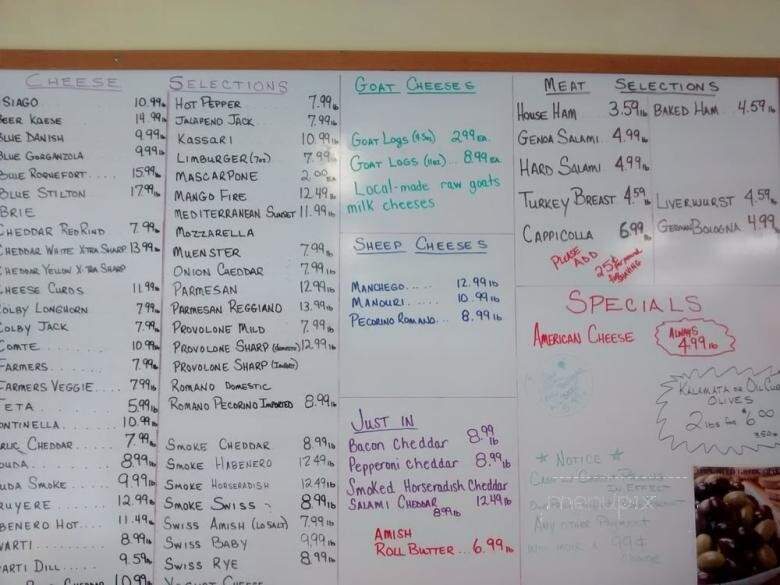 CHEESE
SIAGO 10.99
EER KAESE 14.99
LUE DANISH 9.99
LUE GORGANZOLA 9.99 lb
LUE ROQUEFORT.... 15.99
BLUE STILTON 17.99
BRIE
CHEDDAR RED RIND 7.99
CHEDDAR WHITE XTRA SHARP 13.99
CHEDDAR YELLOW X-TRA SHARP
CHEESE CURDS 11.99
OLBY LONGHORN 7.99
OLBY JACK 7.99
COMTE 10.99
FARMERS 7.99
FARMERS VEGGIE 7.99 lb
FETA 5.99 lb
ONTINELLA 10.99
CHEDDAR 7.99
OUDA 8.99 lb
UDA SMOKE 9.99 lb
RUYERE 12.99
BENERO HOT 11.49
VARTI 8.99 lb
VARTI DILL 9.59
10.99
SELECTIONS
HOT PEPPER 7.99 lb
JALAPENO JACK 7.99 lb
KASSARI 10.99 lb
LIMBURGER (7oz) 7.99
MASCARPONE 2.00 EA
MANGO FIRE 12.49 lb
MEDITERRANEAN SUNSET 11.99 lb
MOZZARELLA
MUENSTER 7.99 lb
ONION CAEDDAR 7.99 lb
PARMESAN 12.99 lb
PARMESAN REGGIANO 13.99 lb
PROVOLONE MILD 7.99 lb
PROVOLONE SHARP (DOMESTIC) 12.99 lb
PROVOLONE SHARP (IMPORT)
ROMANO DOMESTIC
ROMANO PECORINO IMPORTED 8.99 lb
SMOKE CHEDDAR 8.99 lb
SMOKE HABENERO 12.49 lb
SMOKE HORSERADISH 12.49 lb
SMOKE SWISS 8.99 lb
SWISS AMISH (LO SALT) 7.99 lb
SWISS BABY 9.99 lb
SWISS RYE 8.99 lb
YOGURT CHEESE
GOAT CHEESES
GOAT LOGS (4.5oz) 2.99 EA
GOAT LOGS (11oz) ... 8.99 EA
Local-made raw goats
milk cheeses
SHEEP CHEESES
MANCHEGO..... 12.99 lb
MANOURI..... 10.99 lb
PECORINO ROMANO... 8.99 lb
JUST IN
Bacon Cheddar 8.99 lb
Pepperoni cheddar 8.99 lb
Smoked Horseradish Cheddar
12.49 lb
SALAMI CHEDDAR
8.99 lb
AMISH
ROLL BUTTER... 6.99 lb
MEAT SELECTIONS
HOUSE HAM 3.59 lb
GENOA SALAMI 4.99 lb
HARD SALAMI 4.99 lb
TURKEY BREAST 4.59 lb
CAPPICOLLA 6.99 lb
PLEASE ADD
25¢ PER POUND
FOR SLICING
BAKED HAM 4.59 lb
LIVERWURST 4.59 lb
GERMAN BOLOGNA 4.99
SPECIALS
AMERICAN CHEESE
ALWAYS
4.99 lb
KALAMATA OR OIL CURED
OLIVES
2 lbs FOR $6.00
* NOTICE *
IN EFFECT
ANY OTHER PAYMENT
99¢
menupix